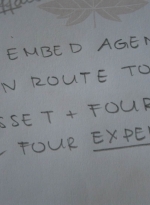 EMBED AGEN
N ROUTE TO
SSET + FOUR
FOUR EXPE